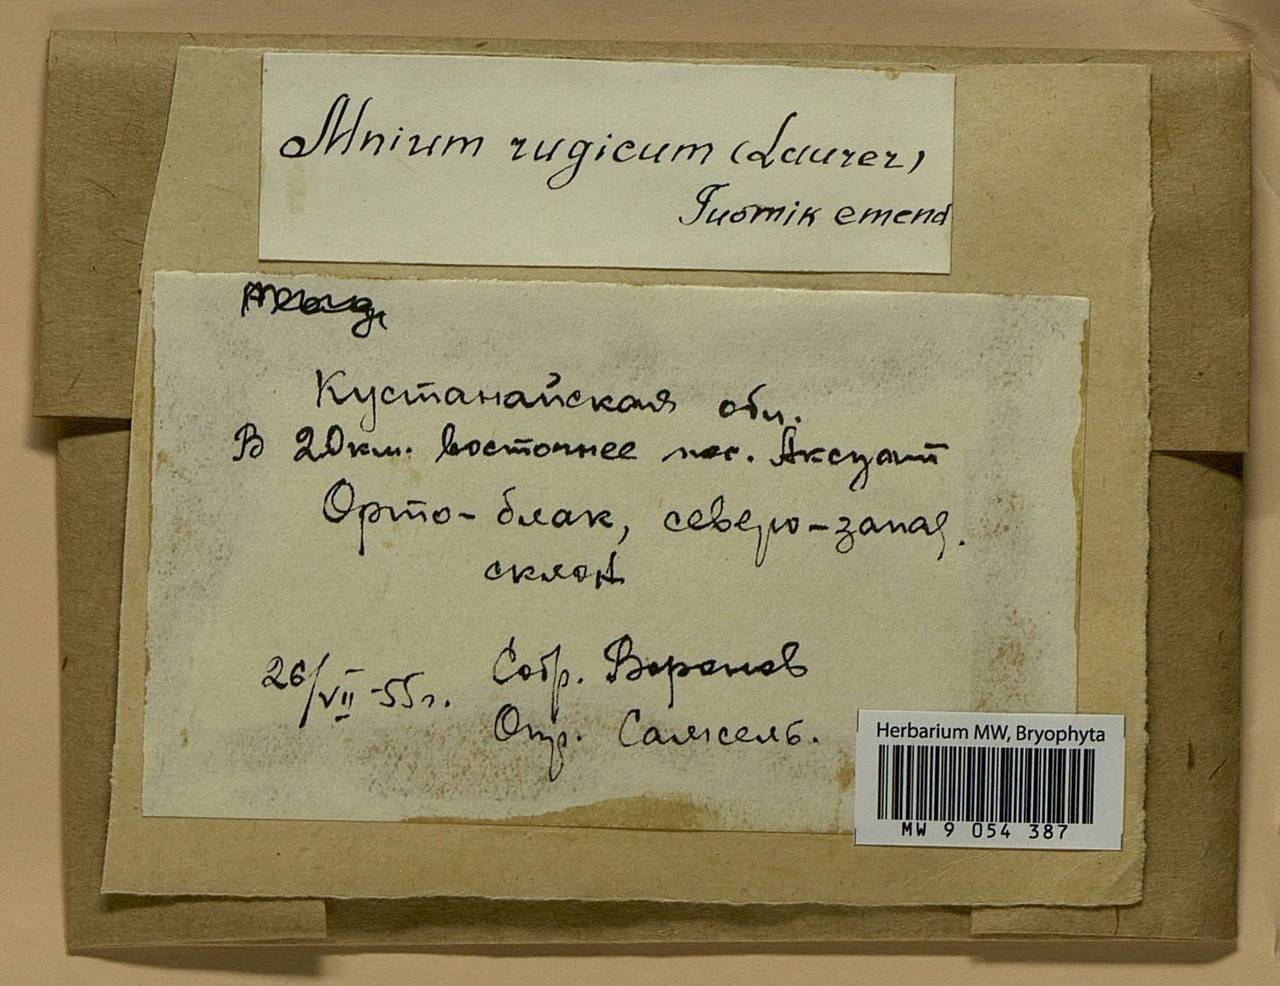 Mnium rugicum (Laurer)
Tuomik emend
Кустанайская обл.
В 20 км. восточнее пос. Аксуат
Орто-блак, северо-запад.
склон
26/VII-55г. Собр. Воронов
Опр.
Herbarium MW, Bryophyta
MW 9 054 387